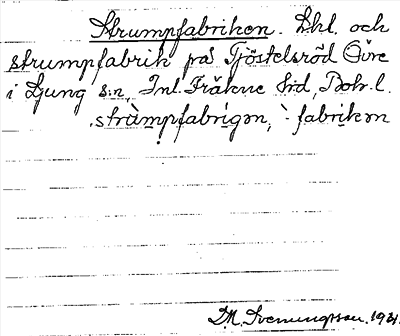 Strumpfabriken. Lhl. och
strumpfabrik på Tjöstelsröd Övre
i Ljung s:n, Inl. Fräkne hrd, Boh. l.
strùmpfabrigən, -̀ fabrikən
D.M. Svenungsson. 1931.